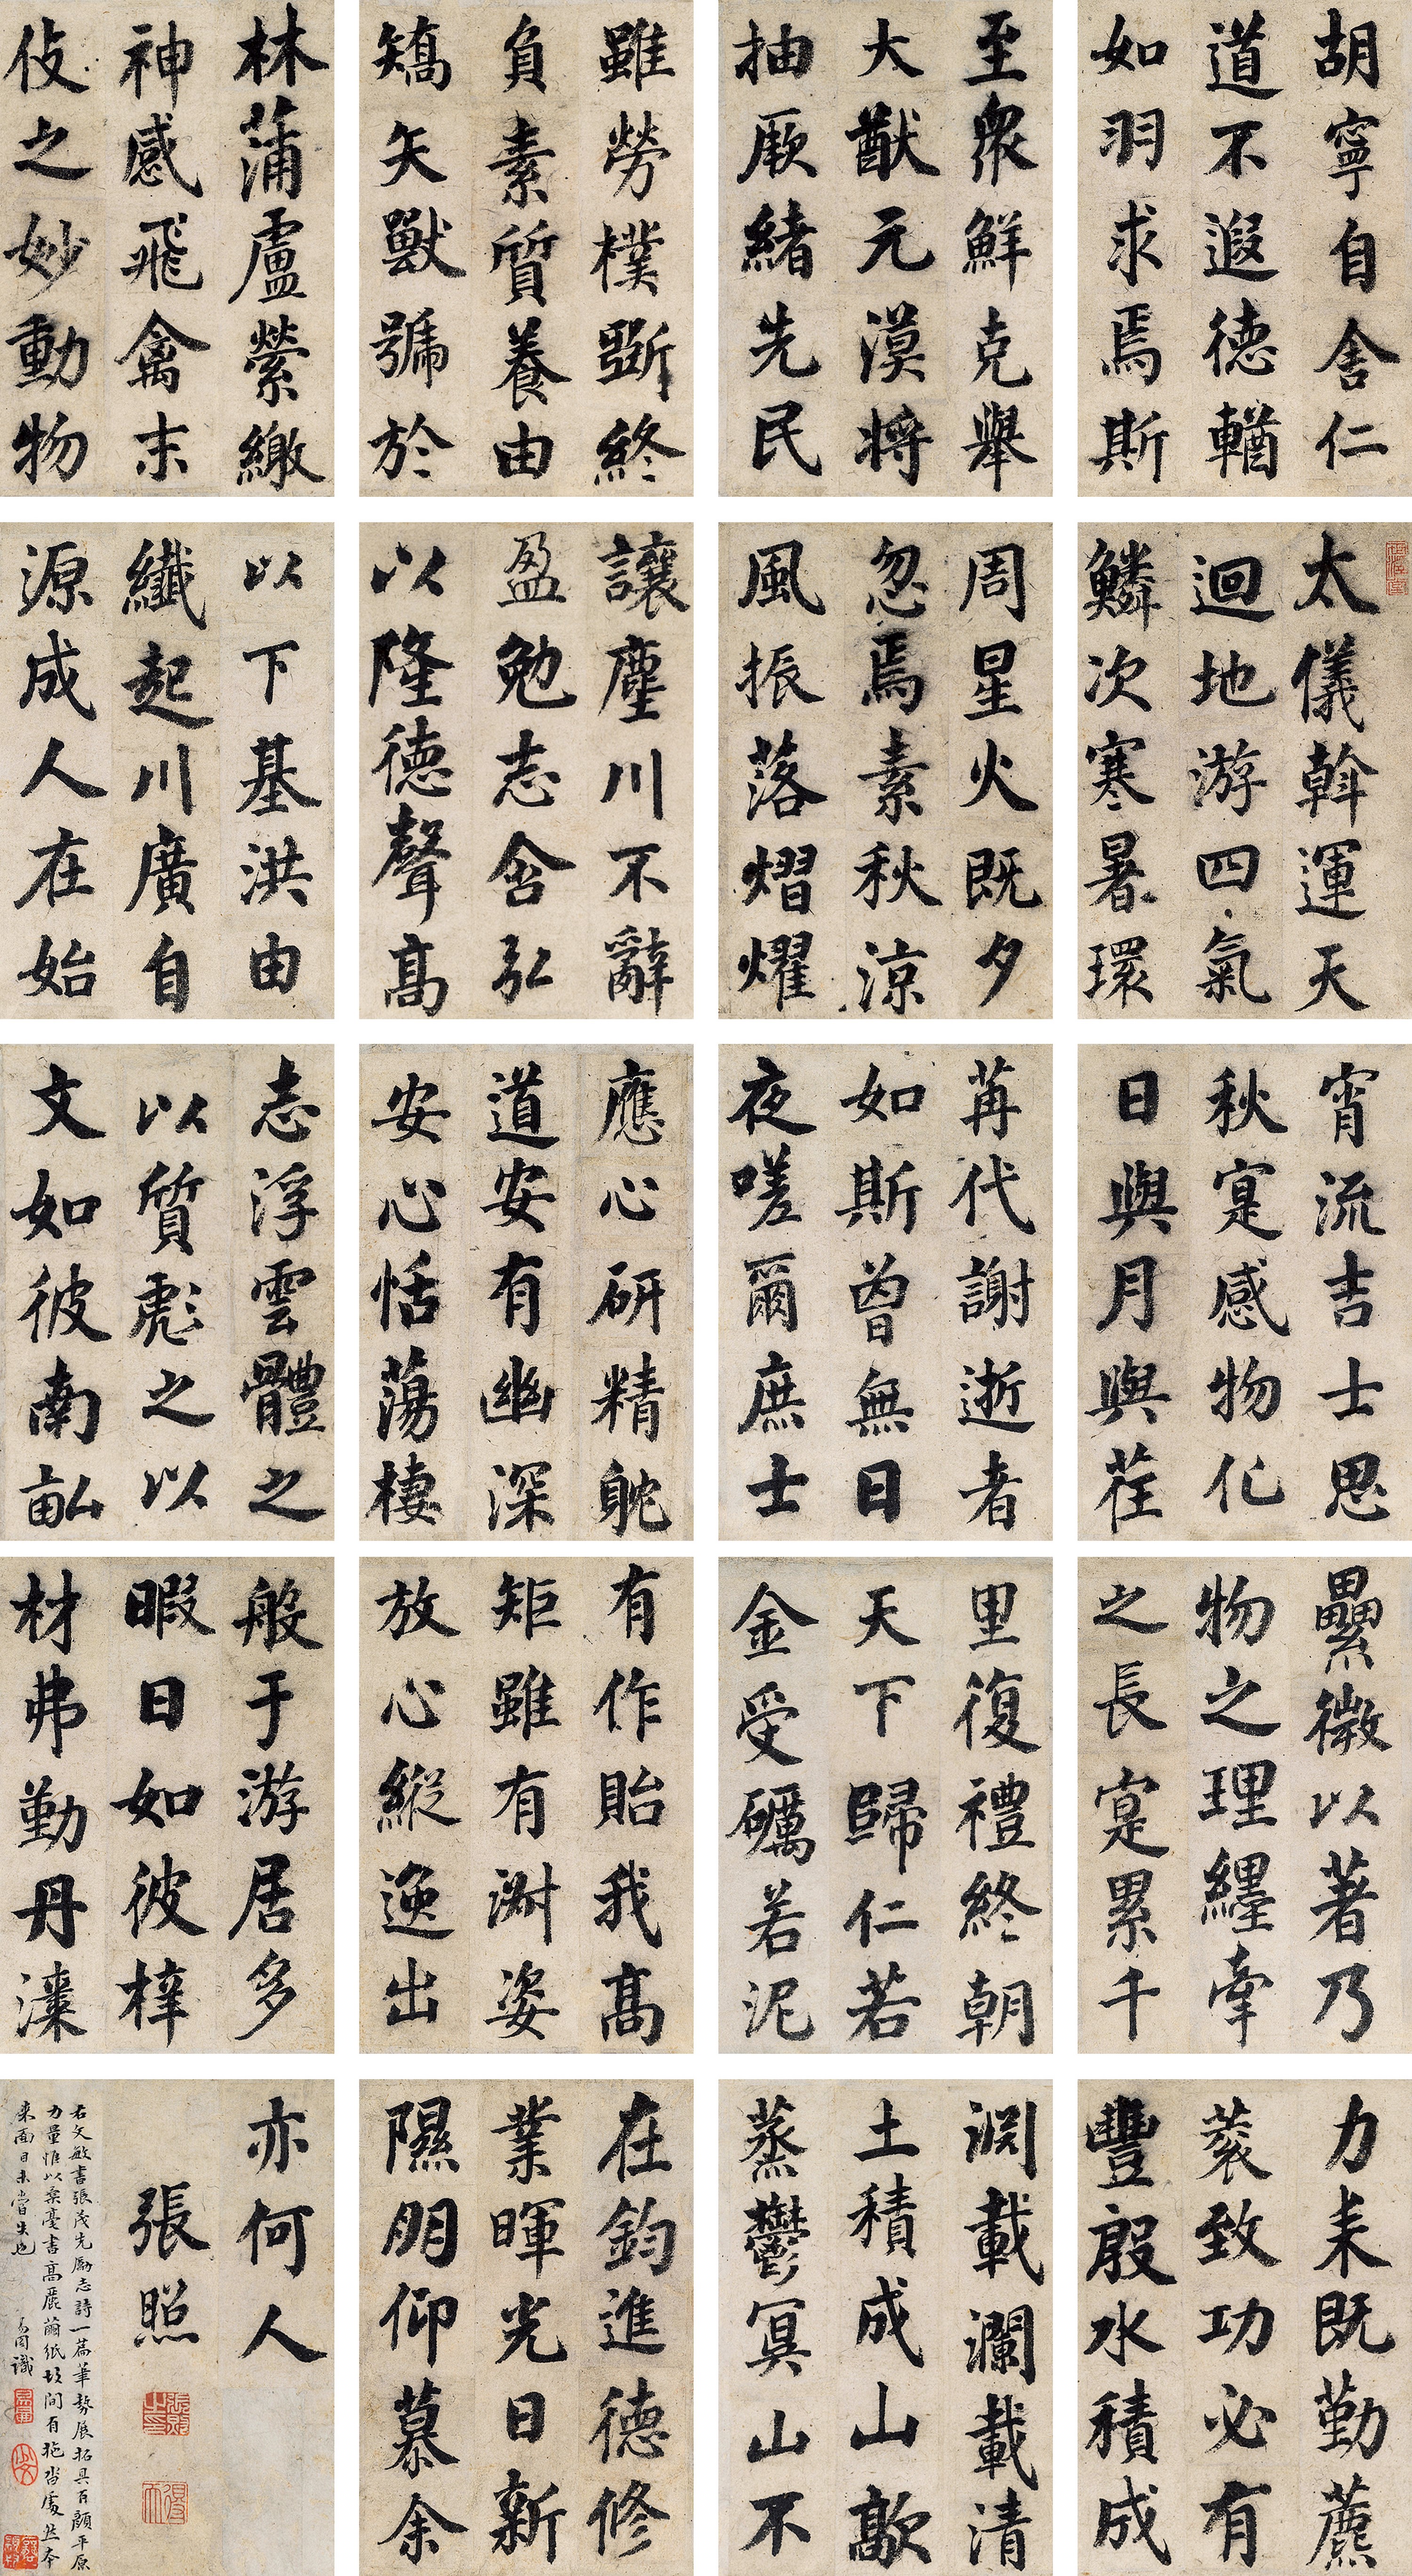 太儀斡運天
迴地游四氣
鱗次寒暑環
周星火既夕
忽焉素秋涼
風振落熠燿
宵流吉士思
秋寔感物化
日與月與荏
苒代謝逝者
如斯曾無日
夜嗟爾庶士
胡寧自舍仁
道不遐德輶
如羽求焉斯
至衆鮮克舉
大猷元漠將
抽厥緒先民
有作貽我高
矩雖有淑姿
放心縱逸出
般于游居多
暇日如彼梓
材弗勤丹漆
雖勞樸斲終
負素質養由
矯矢獸號於
林蒲盧縈繳
神感飛禽末
伎之妙動物
應心研精躭
道安有幽深
安心恬蕩棲
志浮雲體之
以質彪之以
文如彼南畝
力耒既勤藨
蓘致功必有
豐殷水積成
淵載瀾載清
土積成山歊
蒸鬱冥山不
讓塵川不辭
盈勉志含弘
以隆德聲高
以下基洪由
纖起川廣自
源成人在始
纍微以著乃
物之理纆牽
之長寔累千
里復禮終朝
天下歸仁若
金受礪若泥
在鈞進德修
業暉光日新
隰朋仰慕余
亦何人
張照
右文敏書張茂先勵志詩一篇筆勢展拓具有顏平原
力量惟以柔毫書高麗繭紙故間有拖沓處然本
來面目未嘗失也
識